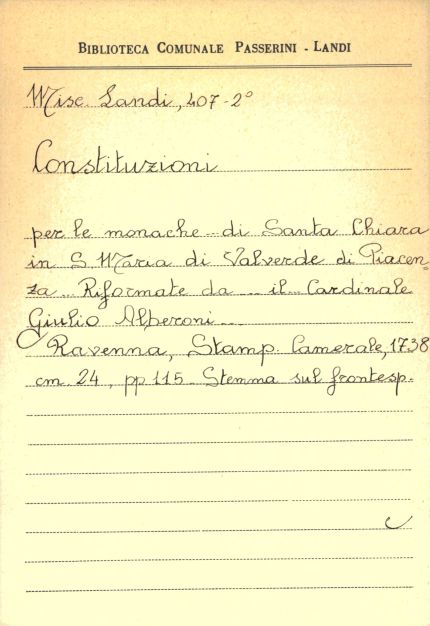 BIBLIOTECA COMUNALE PASSERINI - LANDI
Misc. Landi, 407-2°
Constituzioni
per le monache... di Santa Chiara
in S. Maria di Valverde di Piacen-
za... Riformate da... il... Cardinale
Giulio Alberoni...
Ravenna, Stamp. Camerale, 1738
cm. 24, pp 115. Stemma sul frontesp.